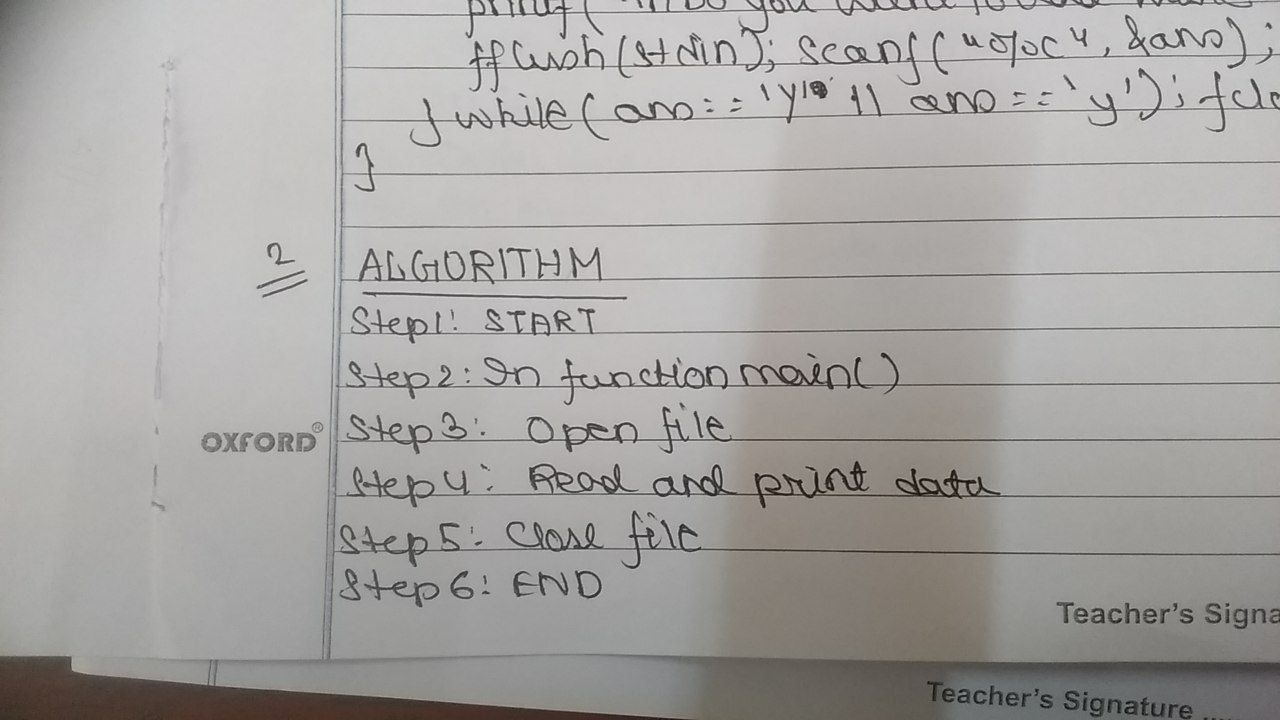 printf( "\n Do you want to add more
fflush(stdin); scanf("%c", &ans);
} while( ans=='Y' || ans=='y');
}
2
ALGORITHM
Step1: START
Step 2: In function main()
OXFORD® Step 3: Open file
Step 4: Read and print data
Step 5: Close file
Step 6: END
Teacher's Signa
Teacher's Signature